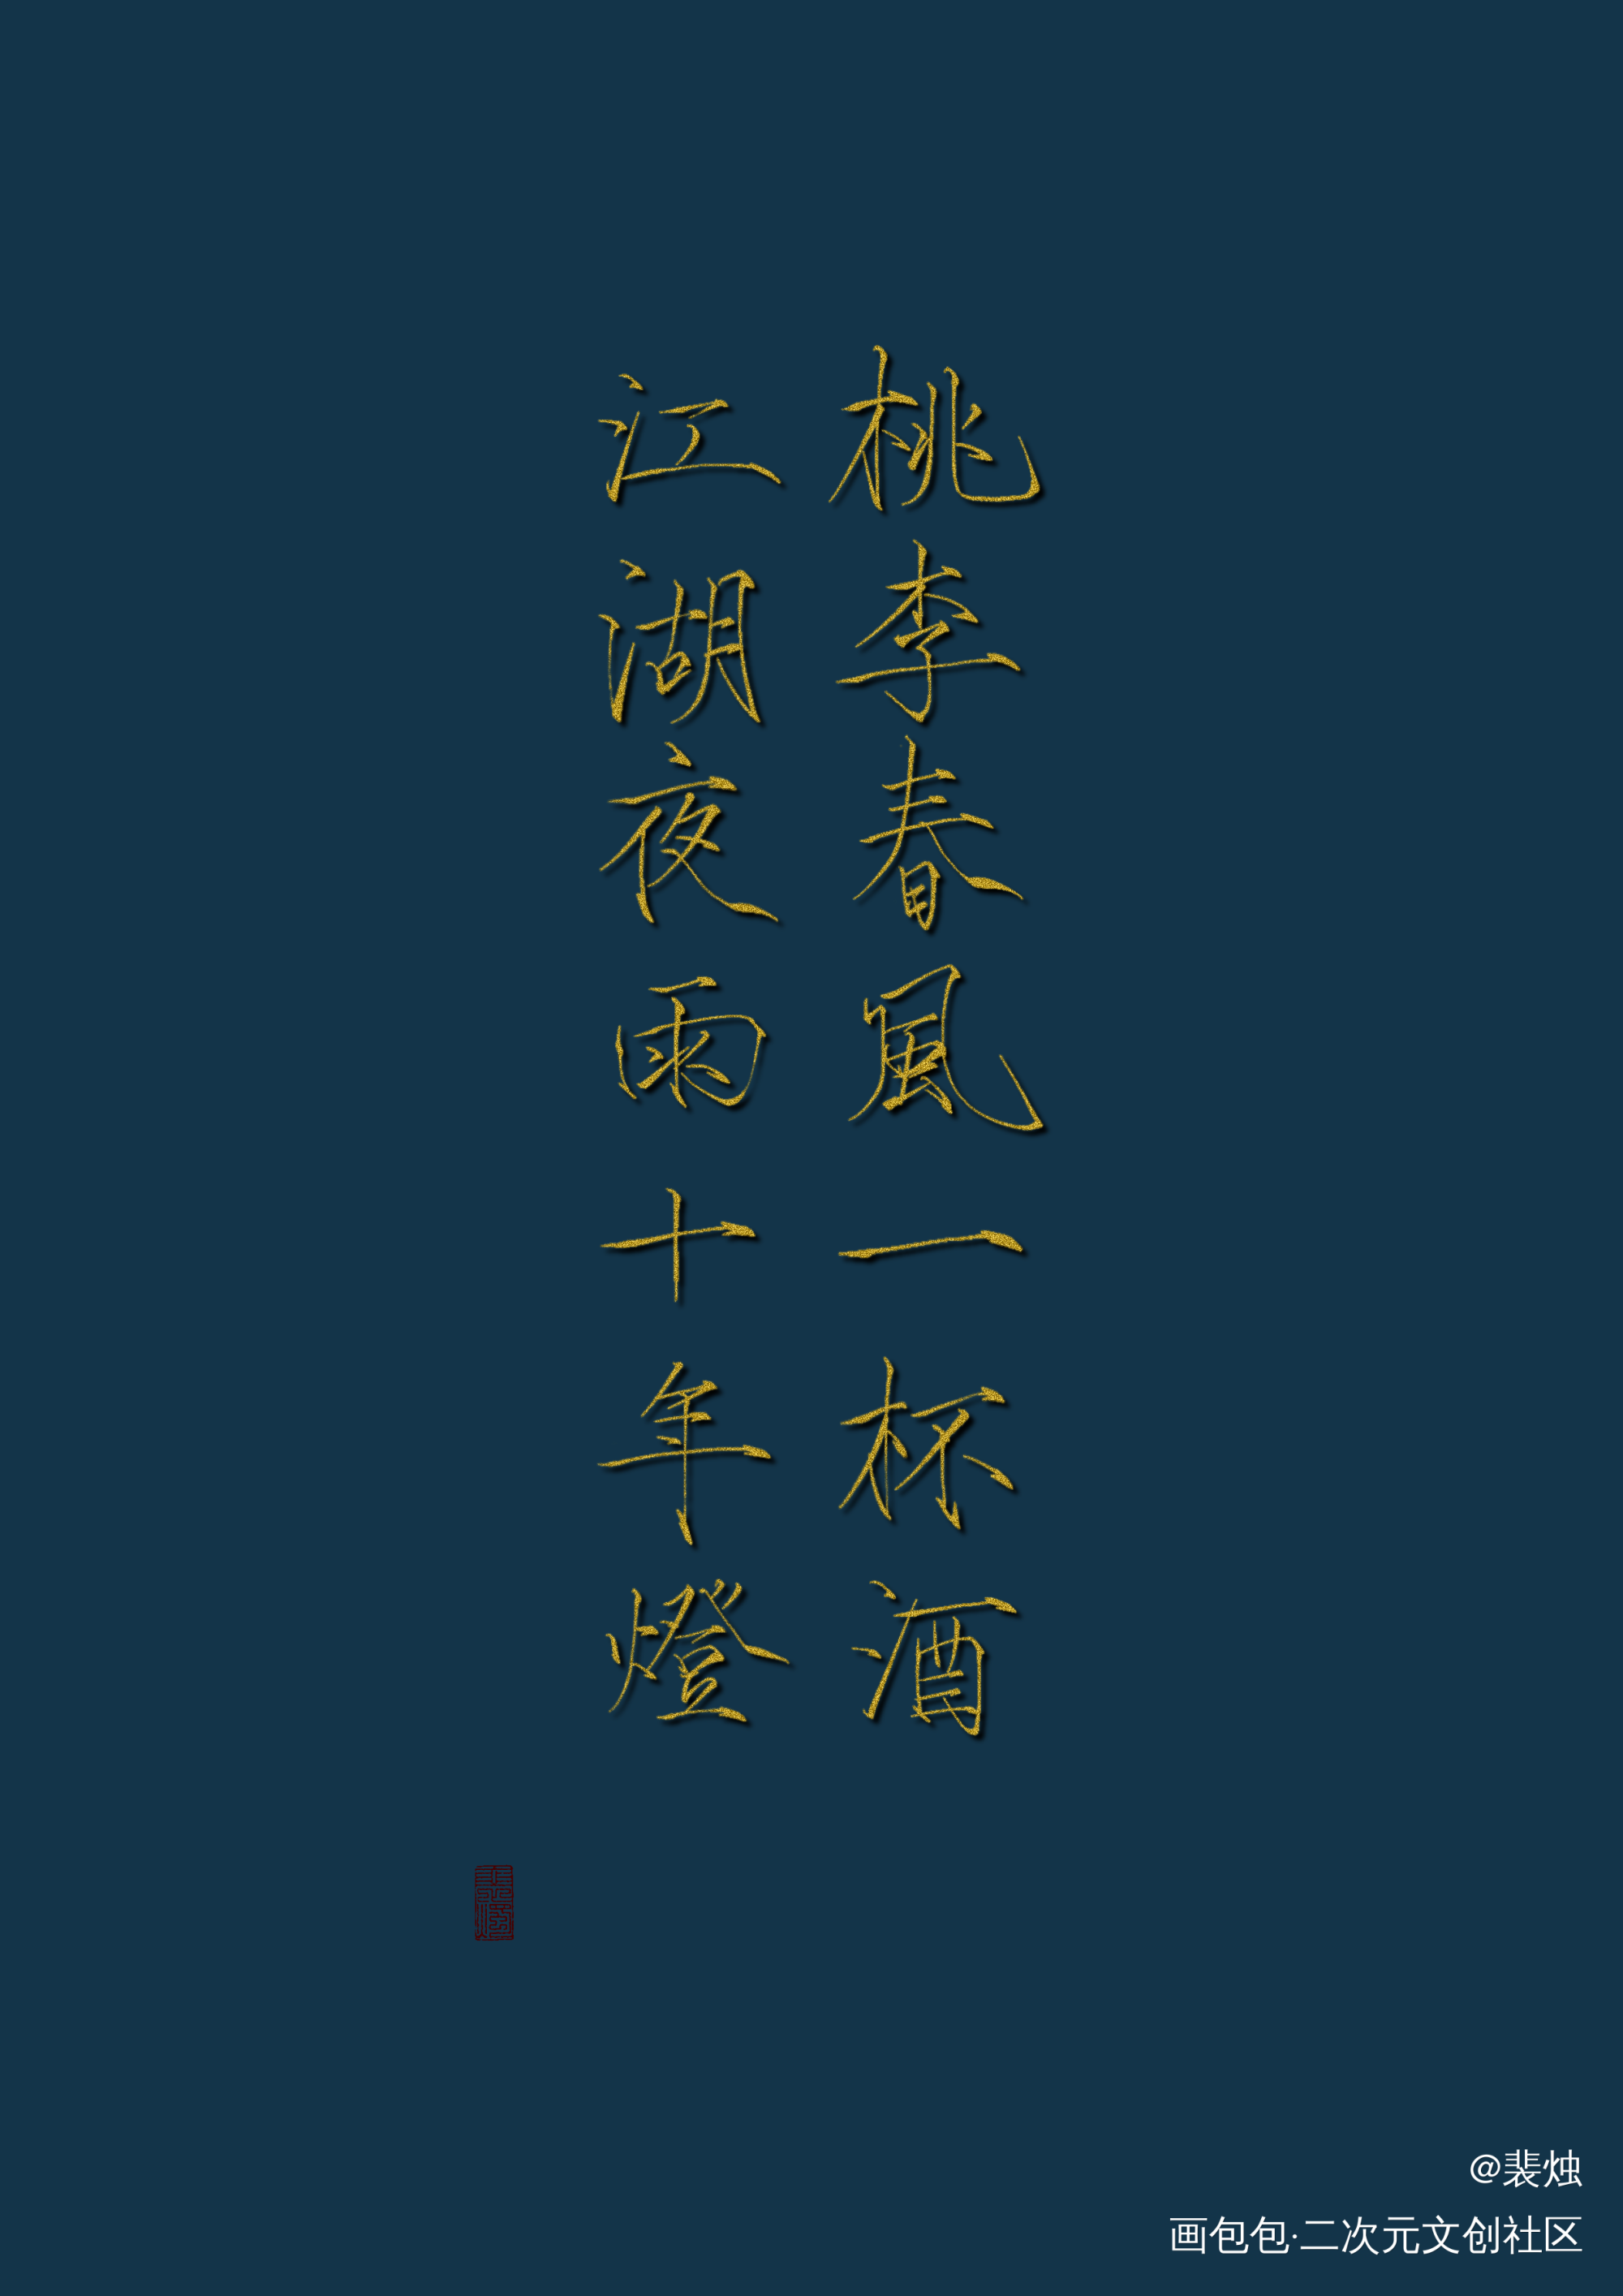 桃李春風一杯酒
江湖夜雨十年燈
@裴烛
画包包·二次元文创社区